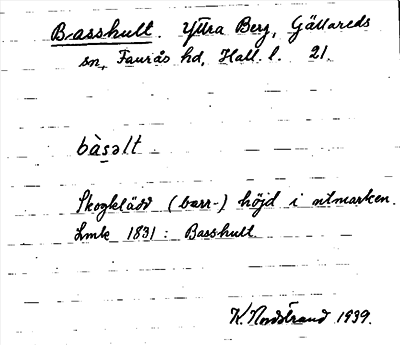 Basshult. Yttra Berg, Gällareds
sn, Faurås hd, Hall. l. 21.
bàsəlt
Skogklädd (barr-) höjd i utmarken.
Lmk 1831: Basshult
K. Nordstrand 1939.